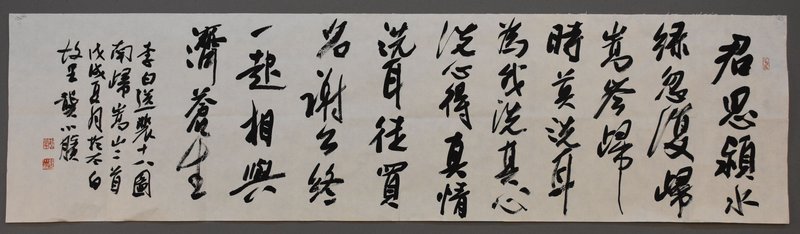 君思潁水
綠忽復歸
嵩岑歸
時莫洗耳
為我洗其心
洗心得真情
洗耳徒買
名謝公終
一起相與
濟蒼生
李白送裴十八圖
南歸嵩山二首
戊戌夏月於太白
故里龔小